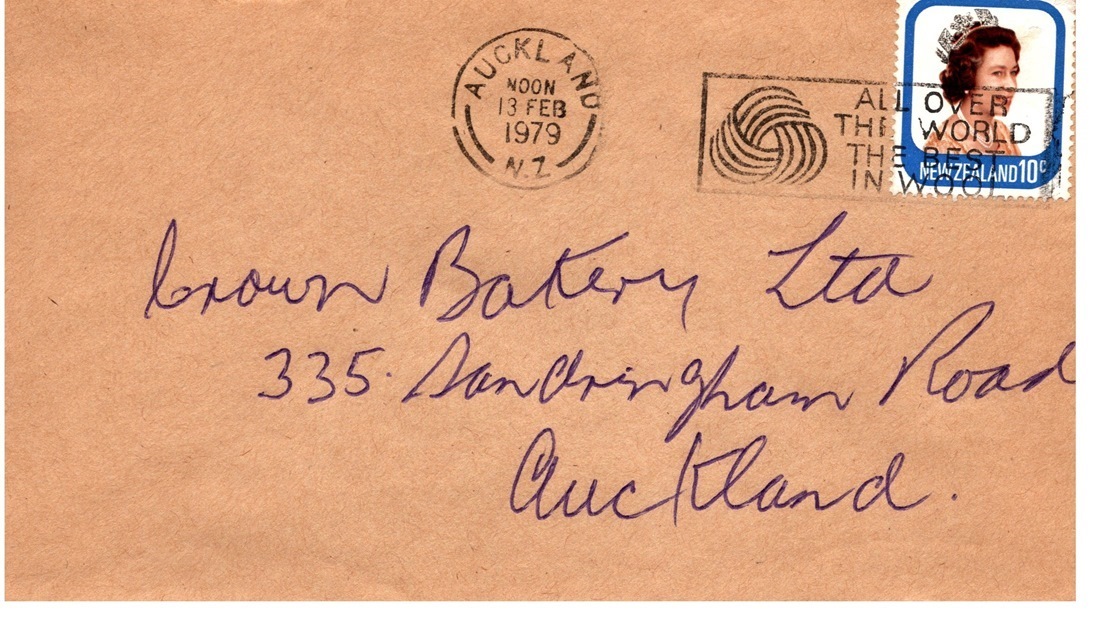 AUCKLAND
NOON
13 FEB
1979
N.Z.
ALL OVER
THE WORLD
THE BEST
IN WOOL
NEW ZEALAND 10c
Crown Bakery Ltd
335. Sandringham Road
Auckland.